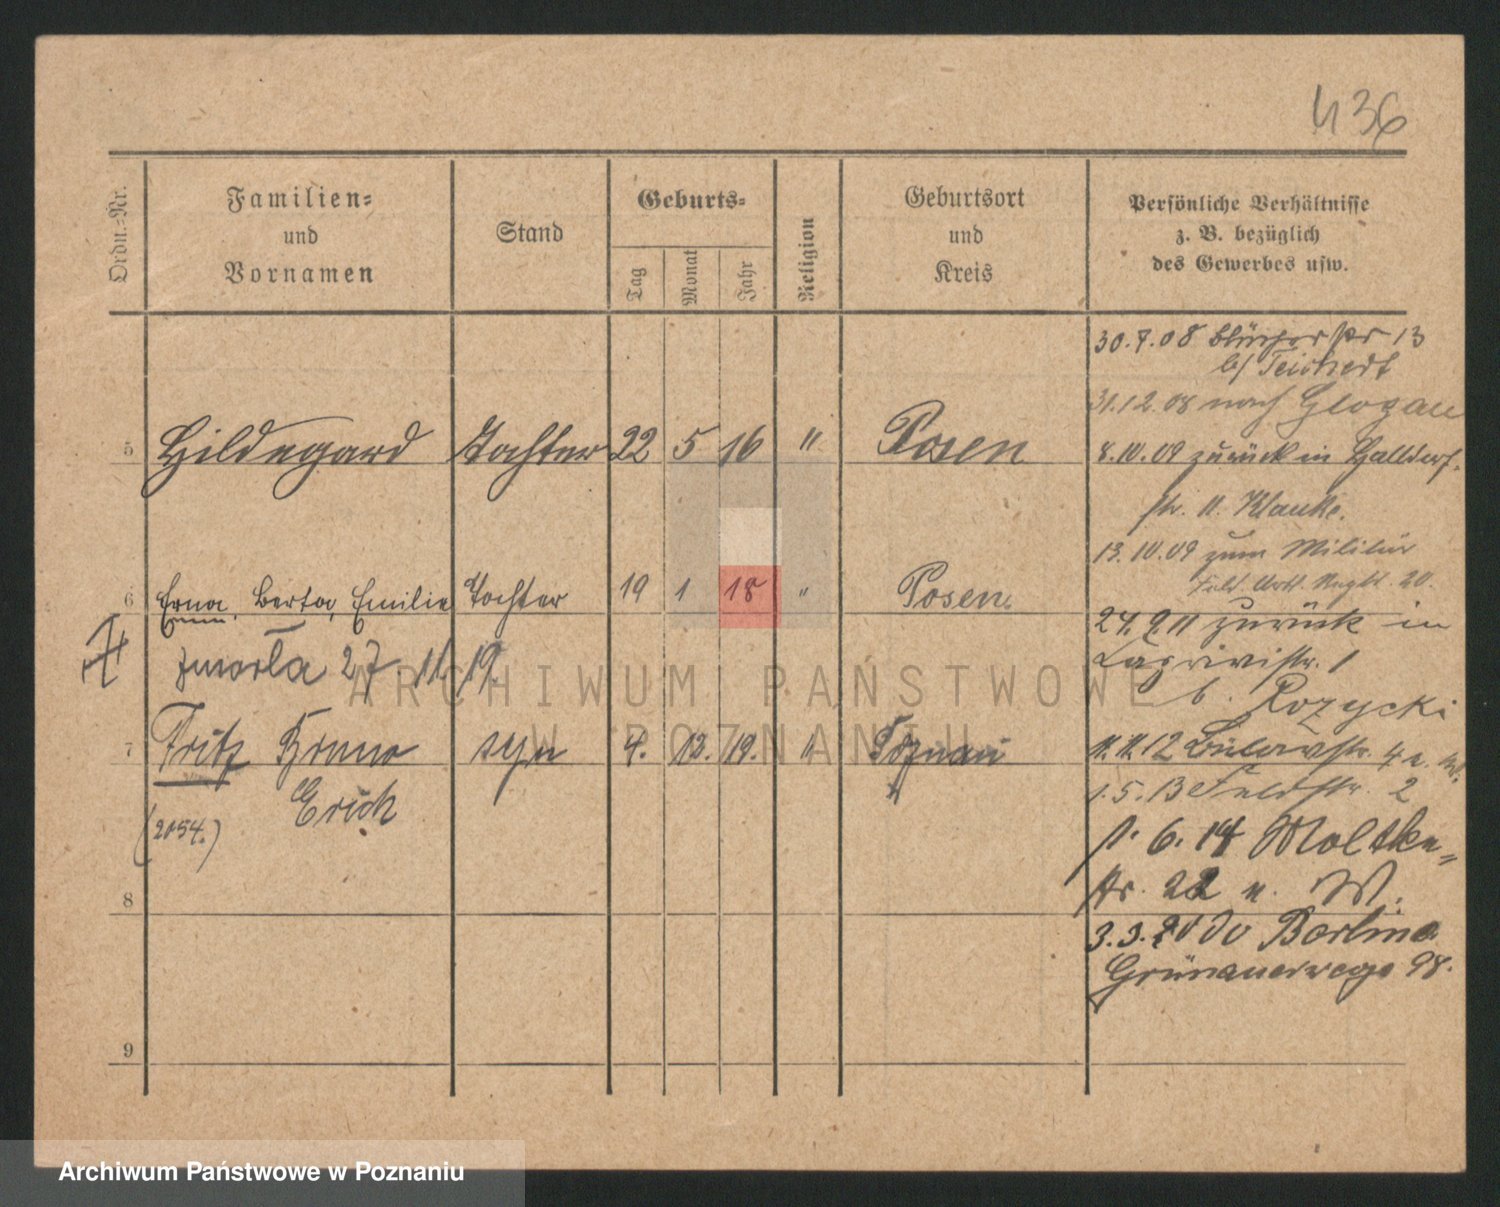 436
Ordn.-Nr.
Familien-
und
Vornamen
Stand
Geburts-
Tag
Monat
Jahr
Religion
Geburtsort
und
Kreis
Persönliche Verhältnisse
z. B. bezüglich
des Gewerbes usw.
5 Hildegard Tochter 22 5 16 " Posen
6 Erna, Berta, Emilie Tochter 19 1 18 " Posen
zmarła 27.11.19.
7 Fritz Bruno syn 4. 12. 19. " Poznań
Erich
(2054.)
8
9
30.7.08 13
b/ Teichert
31.12.08 nach Glogau
8.10.09 zurück in
str. 11. Klauke.
13.10.09 zum Militär
Feld Artl. Regt. 20.
27.9.11 zurück in
str. 1
b. Rozycki
11.11.12 Bülowstr. 4
1.5.13 Feldstr. 2
1.6.14 Moltke-
str. 22 n. W.
3.3. do Berlina
Grünauerwege 98.
ARCHIWUM PAŃSTWOWE
W POZNANIU
Archiwum Państwowe w Poznaniu